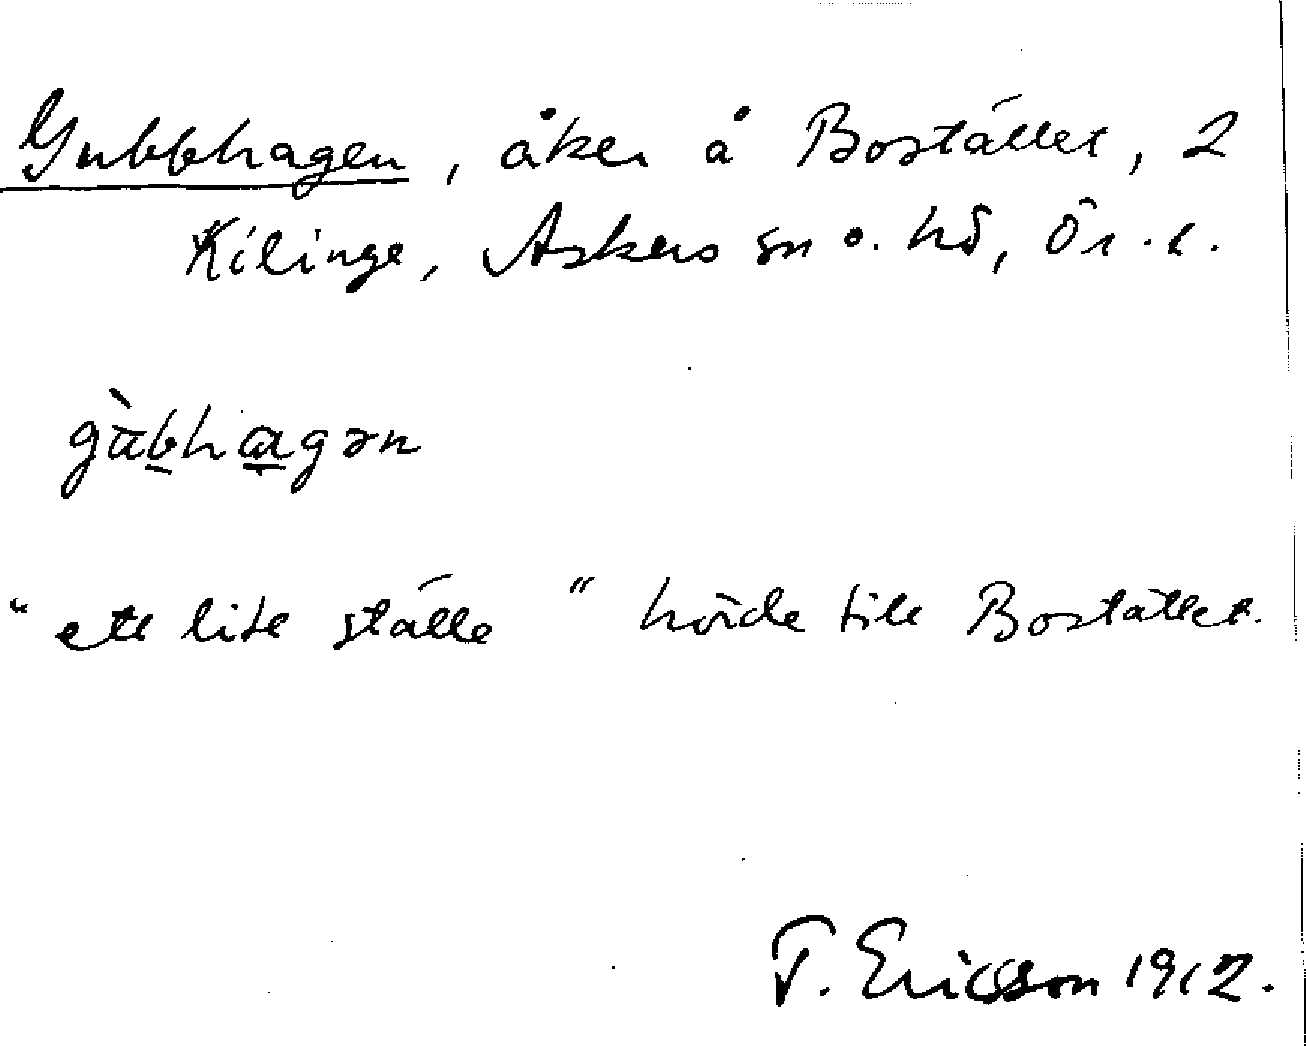 Gubbhagen, åker å Bostället, 2
Kilinge, Askers sn o. hd, Ör. l.
gùb̲ha̲gən
"ett lite ställe" hörde till Bostället.
T. Ericsson 1912.